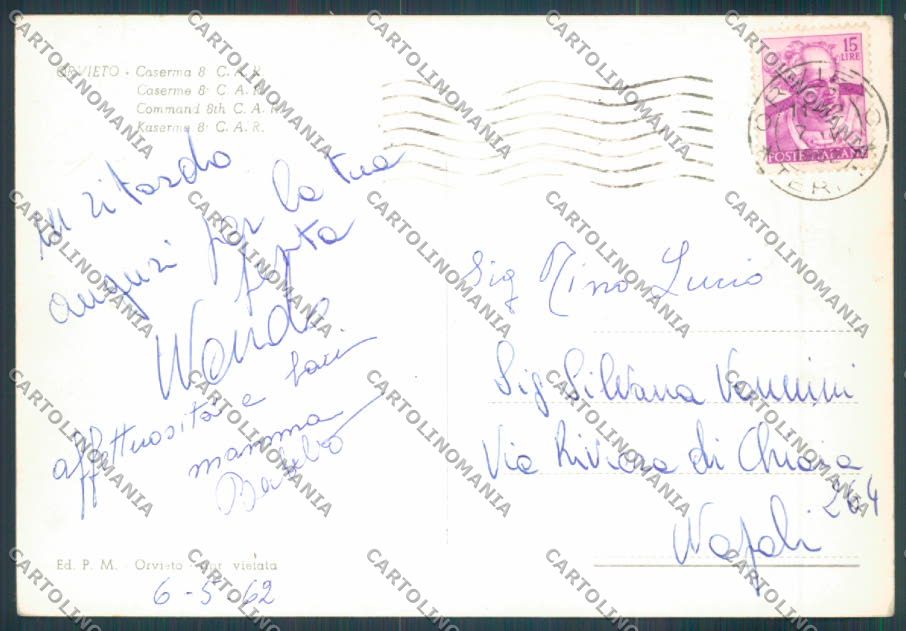 ORVIETO - Caserma 8° C. A. R.
Caserme 8e C. A. R.
Command 8th C. A. R.
Kaserme 8e C. A. R.
15
LIRE
POSTE ITALIANE
in ritardo
auguri per la tua
festa
Wanda
affettuosità e baci
mamma
Sig Nino Lucio
Sig Silvana Vannini
Via Riviera di Chiaia
264
Napoli
Ed. P. M. - Orvieto - Ripr. vietata
6-5-62
CARTOLINOMANIA